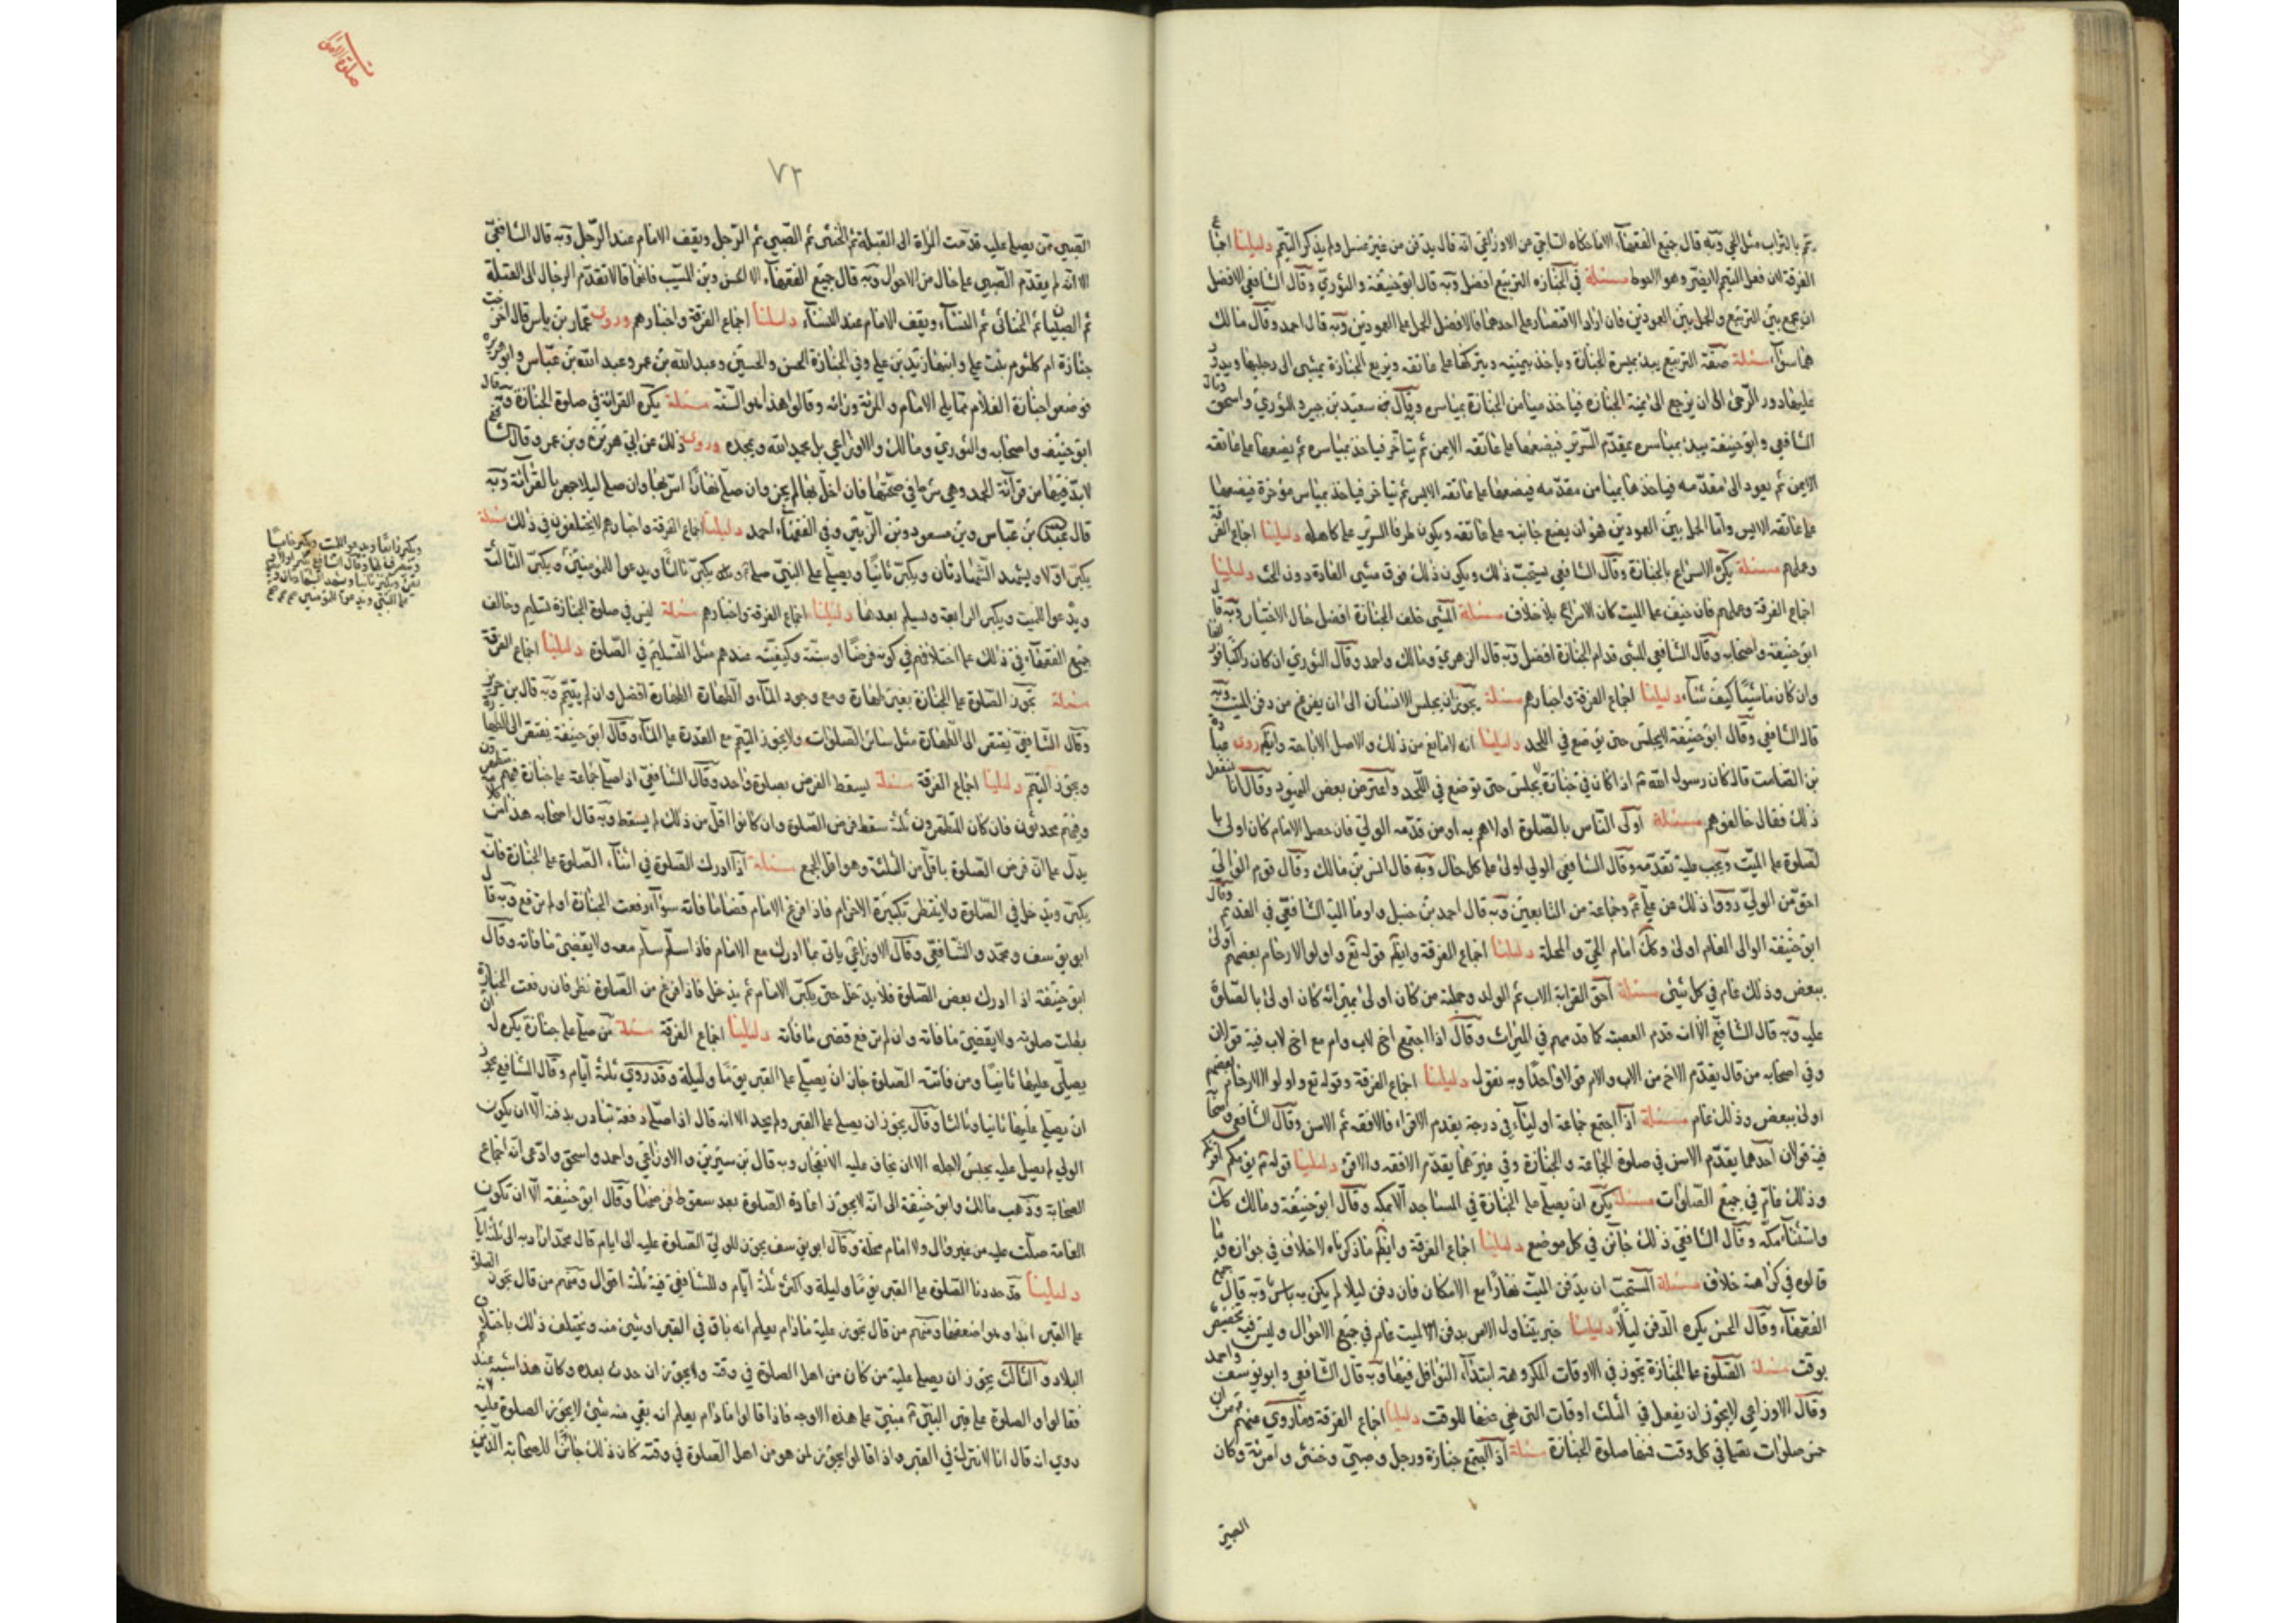 يمم بالتراب مثل الحي وبه قال جميع الفقهاء الا ما حكاه الساجي عن الاوزاعي انه قال يدفن من غير غسل ولم يذكر التيمم دليلنا اجماع
الفرقة لان فعل التيمم لا يضر وهو احوط مسئلة في الجنازه التربيع افضل وبه قال ابو حنيفة والثوري وقال الشافعي الافضل
ان يجمع بين التربيع والحمل بين العمودين فان اراد الاقتصار على احدهما فالافضل الحمل على العمودين وبه قال احمد وقال مالك
هما سواء مسئلة صفة التربيع يبدء بميسرة الجنازة وياخذ بيمينه ويتركها على عاتقه ويربع الجنازة يمشي الى رجليها ويدور
عليها دور الرحى الى ان يرجع الى يمنة الجنازه فياخذ ميامن الجنازة بمياسره وبه قال سعيد بن جبير والثوري واسحق وقال
الشافعي وابو حنيفة يبدء بمياسره مقدم السرير فيضعها على عاتقه الايمن ثم يتأخر فياخذ بمياسره ثم يضعها على عاتقه
الايمن ثم يعود الى مقدمه فياخذ ميامن مقدمه فيضعها على عاتقه الايسر ثم يتاخر فياخذ بمياسر مؤخره فيضعها
على عاتقه الايسر واما الحمل بين العمودين هو ان يضع جانبه على عاتقه ويكون طرفا السرير على كاهله دليلنا اجماع الفرقة
وعملهم مسئلة يكره الاسراع بالجنازة وقال الشافعي يستحب ذلك ويكون ذلك فوق مشي العادة دون الخبب دليلنا
اجماع الفرقة وعملهم فان خيف على الميت كان الاسراع بلا خلاف مسئلة المشي خلف الجنازة افضل حال الاختيار وبه قال
ابو حنيفة واصحابه وقال الشافعي المشي قدام الجنازة افضل وبه قال الزهري ومالك واحمد وقال الثوري ان كان راكبا فوراءها
وان كان ماشيا كيف شاء دليلنا اجماع الفرقة واخبارهم مسئلة يجوز ان يجلس الانسان الى ان يفرغ من دفن الميت وبه
قال الشافعي وقال ابو حنيفة لا يجلس حتى يوضع في اللحد دليلنا انه لا مانع من ذلك والاصل الاباحة وايضا روى عبادة
بن الصامت قال كان رسول الله ص اذا كان في جنازة لم يجلس حتى توضع في اللحد واعترض بعض اليهود وقال انا لنفعل
ذلك فقال خالفوهم مسئلة اولى الناس بالصلوة اولاهم به او من قدمه الولي فان حضر الامام كان اولى با
لصلوة على الميت ويجب عليه تقدمه وقال الشافعي الولي اولى على كل حال وبه قال انس بن مالك وقال قوم الوالي
احق من الولي رووا ذلك عن علي ع وجماعة من التابعين وبه قال احمد بن حنبل واومأ اليه الشافعي في القديم وقال
ابو حنيفه الوالي العام اولى وكك امام الحي والمحلة دليلنا اجماع الفرقة وايضا قوله تع واولوا الارحام بعضهم اولى
ببعض وذلك عام في كل شيئ مسئلة احق القرابة الاب ثم الولد وجملته من كان اولى بميراثه كان اولى بالصلوة
عليه وبه قال الشافعي الا انه قدم العصبة كما قدمهم في الميراث وقال اذا اجتمع اخ لاب وام مع اخ لاب فيه قولان
وفي اصحابه من قال يقدم الاخ من الاب والام قولا واحدا وبه نقول دليلنا اجماع الفرقة وقوله تع واولوا الارحام بعضهم
اولى ببعض وذلك عام مسئلة اذا اجتمع جماعة اولياء في درجة يقدم الاقراء فالافقه ثم الاسن وقال الشافعي واصحابه
فيه قولان احدهما يقدم الاسن في صلوة الجماعة والجنازة وفي غيرهما يقدم الافقه والاقرء دليلنا قوله ع يؤمكم اقرؤكم
وذلك عام في جميع الصلوات مسئلة يكره ان يصلى على الجنازة في المساجد الا بمكه وقال ابو حنيفة ومالك كك
واستثناء مكه وقال الشافعي ذلك جائز في كل موضع دليلنا اجماع الفرقة وايضا ما ذكرناه لا خلاف في جوازه وما
قالوه في كراهته خلاف مسئلة المستحب ان يدفن الميت نهارا مع الامكان فان دفن ليلا لم يكن به باس وبه قال جميع
الفقهاء وقال الحسن يكره الدفن ليلا دليلنا خبر يتناول الامر بدفن الميت عام في جميع الاحوال وليس فيه تخصيص
بوقت مسئلة الصلوة على الجنازة تجوز في الاوقات المكروهة ابتداء النوافل فيها وبه قال الشافعي وابو يوسف واحمد
وقال الاوزاعي لا يجوز ان يفعل في تلك اوقات التي نهي عنها للوقت دليلنا اجماع الفرقة وما روي عنهم من ان
خمس صلوات تصليها في كل وقت فمنها صلوة الجنازة مسئلة اذا اجتمع جنازة ورجل وصبي وخنثى وامرئة وكان
الصبي
٧٢
الصبي ممن يصلى عليه قدمت المراة الى القبلة ثم الخنثى ثم الصبي ثم الرجل ويقف الامام عند الرجل وبه قال الشافعي
الا انه لم يقدم الصبي على حال من الاحوال وبه قال جميع الفقهاء الا الحسن وبن المسيب فانهما قالا تقدم الرجال الى القبلة
ثم الصبيان ثم الخناثى ثم النساء ويقف الامام عند النساء دليلنا اجماع الفرقة واخبارهم وروى عمار بن ياسر قال اخرجت
جنازة ام كلثوم بنت علي وابنها زيد بن علي وفي الجنازة الحسن والحسين وعبد الله بن عمر وعبد الله بن عباس وابو هريره
فوضعوا جنازة الغلام مما يلي الامام والمرئة ورائه وقالوا هذا هو السنة مسئلة يكره القرائة في صلوة الجنازة وبه قال
ابو حنيفه واصحابه والثوري ومالك والاوزاعي بل يحمد الله ويمجده وروى ذلك عن ابي هريرة وبن عمر وقال الشافعي
لا بد فيها من قرائة الحمد وهي شرط في صحتها فان اخل بها لم يجز وان صلى نهارا اسر بها وان صلى ليلا جهر بالقرائة وبه
قال عبد الله بن عباس وبن مسعود وبن الزبير وفي الفقهاء احمد دليلنا اجماع الفرقة واخبارهم لا يختلفون في ذلك مسئلة
يكبر اولا ويشهد الشهادتان ويكبر ثانيا ويصلي على النبي صلى الله عليه وآله يكبر ثالثا ويدعو للمؤمنين ويكبر الثالث
ويدعو للميت ويكبر الرابعة ويسلم بعدها دليلنا اجماع الفرقة واخبارهم مسئلة ليس في صلوة الجنازة تسليم وخالف
جميع الفقهاء في ذلك على اختلافهم في كونه فرضا او سنة وكيفيته عندهم مثل التسليم في الصلوة دليلنا اجماع الفرقة
مسئلة تجوز الصلوة على الجنازة بغير طهارة ومع وجود الماء والطهارة افضل وان لم يتيمم وبه قال بن جرير
وقال الشافعي يفتقر الى الطهارة مثل سائر الصلوات ولا يجوز التيمم مع القدرة على الماء وقال ابو حنيفة يفتقر الى الطهارة
ويجوز التيمم دليلنا اجماع الفرقة مسئلة يسقط الفرض بصلوة واحد وقال الشافعي اذا صلى جماعة على جنازة فيهم متطهرون
وفيهم محدثون فان كان المتطهرون ثلثة سقط فرض الصلوة وان كانوا اقل من ذلك لم يسقط وبه قال اصحابه هذا
يدل على ان فرض الصلوة باقل من الثلثة وهو اقل الجمع مسئلة اذا ادرك الصلوة في اثناء الصلوة على الجنازة فانه
يكبر ويدخل في الصلوة ولا ينتظر تكبيرة الاحرام فاذا فرغ الامام قضى ما فاته سواء رفعت الجنازة او لم ترفع وبه قال
ابو يوسف ومحمد والشافعي وقال الاوزاعي ياتي بما ادرك مع الامام فاذا سلم سلم معه ولا يقضي ما فاته وقال
ابو حنيفة اذا ادرك بعض الصلوة فلا يدخل حتى يكبر الامام ثم يدخل فاذا فرغ من الصلوة نظر فان رفعت الجنازة
بطلت صلوته ولا يقضي ما فاته وان لم ترفع قضى ما فاته دليلنا اجماع الفرقة مسئلة من صلى على جنازة يكره له ان
يصلي عليها ثانيا ومن فاتته الصلوة جاز ان يصلي على القبر يوما وليلة وقد روي ثلثة ايام وقال الشافعي يجوز
ان يصلي عليها ثانيا وثالثا وقال يجوز ان يصلى على القبر ولم يحد الا انه قال اذا صلى دفعة تبادر بدفنه الا ان يكون
الولي لم يصل عليه يحبس لاجله الا ان يخاف عليه الانفجار وبه قال بن سيرين والاوزاعي واحمد واسحق وادعى انه اجماع
الصحابة وذهب مالك وابو حنيفة الى انه لا يجوز اعادة الصلوة بعد سقوط فرضها وقال ابو حنيفة الا ان تكون
العامة صلت عليه من غير وال ولا امام محلة وقال ابو يوسف يجوز للولي الصلوة عليه الى ايام قال محمد الى ثلثة ايام
دليلنا قد حددنا الصلوة على القبر يوما وليلة واكثره ثلثة ايام وللشافعي فيه ثلثة اقوال ومنهم من قال تجوز الصلوة
على القبر ابدا وهو اضعفها ومنهم من قال يجوز عليه ما دام يعلم انه باق في القبر او شيئ منه ويختلف ذلك باختلاف
البلاد والثالث يجوز ان يصلي عليه من كان من اهل الصلوة في وقته ولا يجوز ان حدث بعده وكان هذا اشبه عندهم
فقالوا والصلوة على قبر النبي ع مبني على هذه الاوجه فاذا قالوا ما دام يعلم انه بقي منه شيئ لا يجوز الصلوة عليه
روي انه قال انا لا نترك في القبر واذا قالوا يجوز لمن هو من اهل الصلوة في وقته كان ذلك جائزا للصحابة الذين